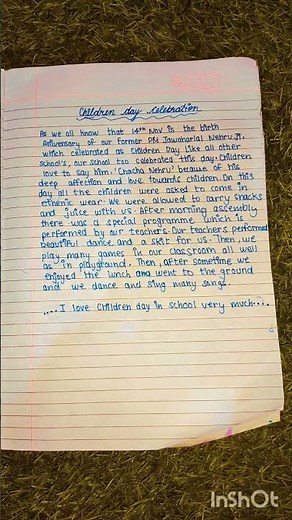 Children day celebration
As we all know that 14th Nov is the birth
Aniversary of our former PM Jawaharlal Nehru ji,
which celebrated as Children Day. Like all other
school's, our school too celebrated this day. Children
love to say him. 'Chacha Nehru' because of his
deep affection and love towards children. On this
day all the children were asked to come in
ethenic wear. We were allowed to carry snacks
and juice with us. After morning assembly
there was a special programme which is
performed by our teachers. Our teachers performed
beautiful dance and a skit for us. Then, we
play many games in our classroom all well
as in playground. Then, after sometime we
enjoyed the lunch and went to the ground
and we dance and sing many songs.
.....I love Children day in school very much....
InShOt